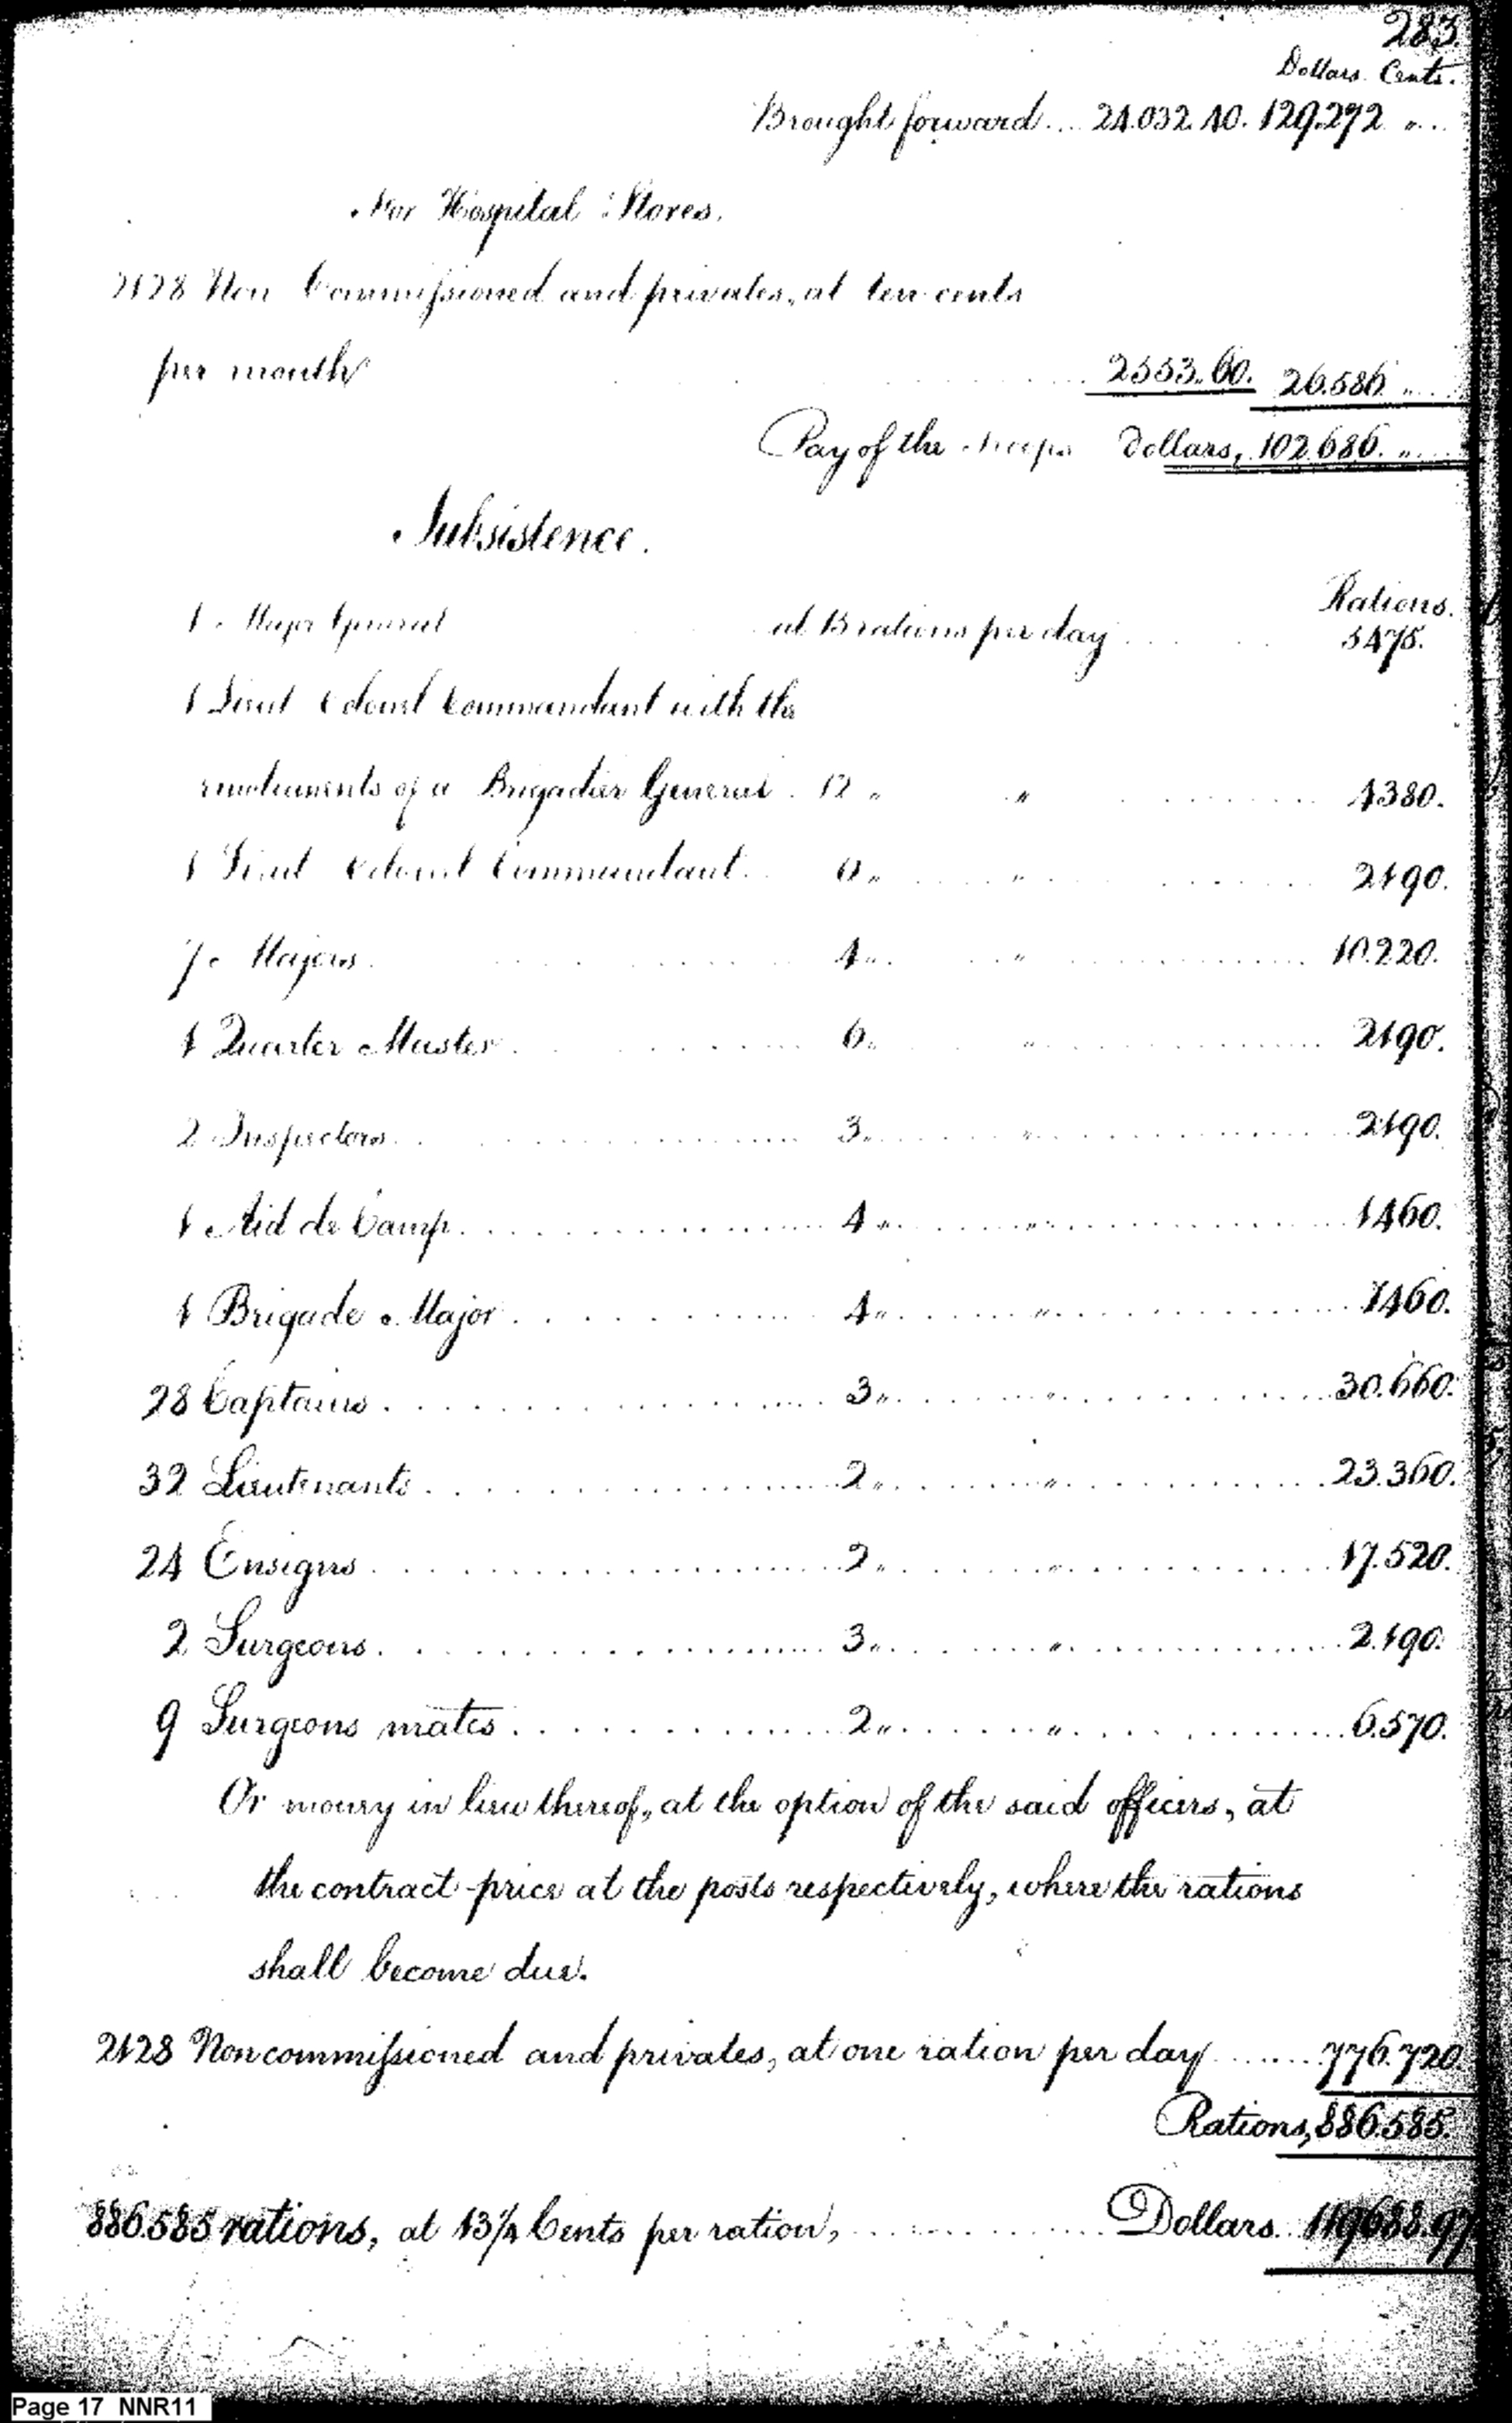 283.
Dollars. Cents.
Brought forward ... 24.032.40. 129.272 " ...
For Hospital Stores.
2128 Non Commissioned and privates, at ten cents
per month ... 2553.60. 26.586 " ...
Pay of the troops Dollars, 102.686. " ...
Subsistence.
Rations.
1 Major General at 15 rations per day ... 5475.
1 Lieut Colonel Commandant with the
emoluments of a Brigadier General . 12 " " ... 4380.
1 Lieut Colonel Commandant ... 6 " ... " ... 2190.
7 Majors ... 4 " ... " ... 10.220.
1 Quarter Master ... 6 " ... " ... 2190.
2 Inspectors ... 3 " ... " ... 2190.
1 Aid de Camp ... 4 " ... " ... 1460.
1 Brigade Major ... 4 " ... " ... 1460.
28 Captains ... 3 " ... " ... 30.660.
32 Lieutenants ... 2 " ... " ... 23.360.
24 Ensigns ... 2 " ... " ... 17.520.
2 Surgeons ... 3 " ... " ... 2.190.
9 Surgeons mates ... 2 " ... " ... 6.570.
Or money in lieu thereof, at the option of the said officers, at
the contract price at the posts respectively, where the rations
shall become due.
2128 Noncommissioned and privates, at one ration per day ... 776.720
Rations, 886.585.
886.585 rations, at 13½ Cents per ration, ... Dollars. 119688.97
Page 17 NNR11